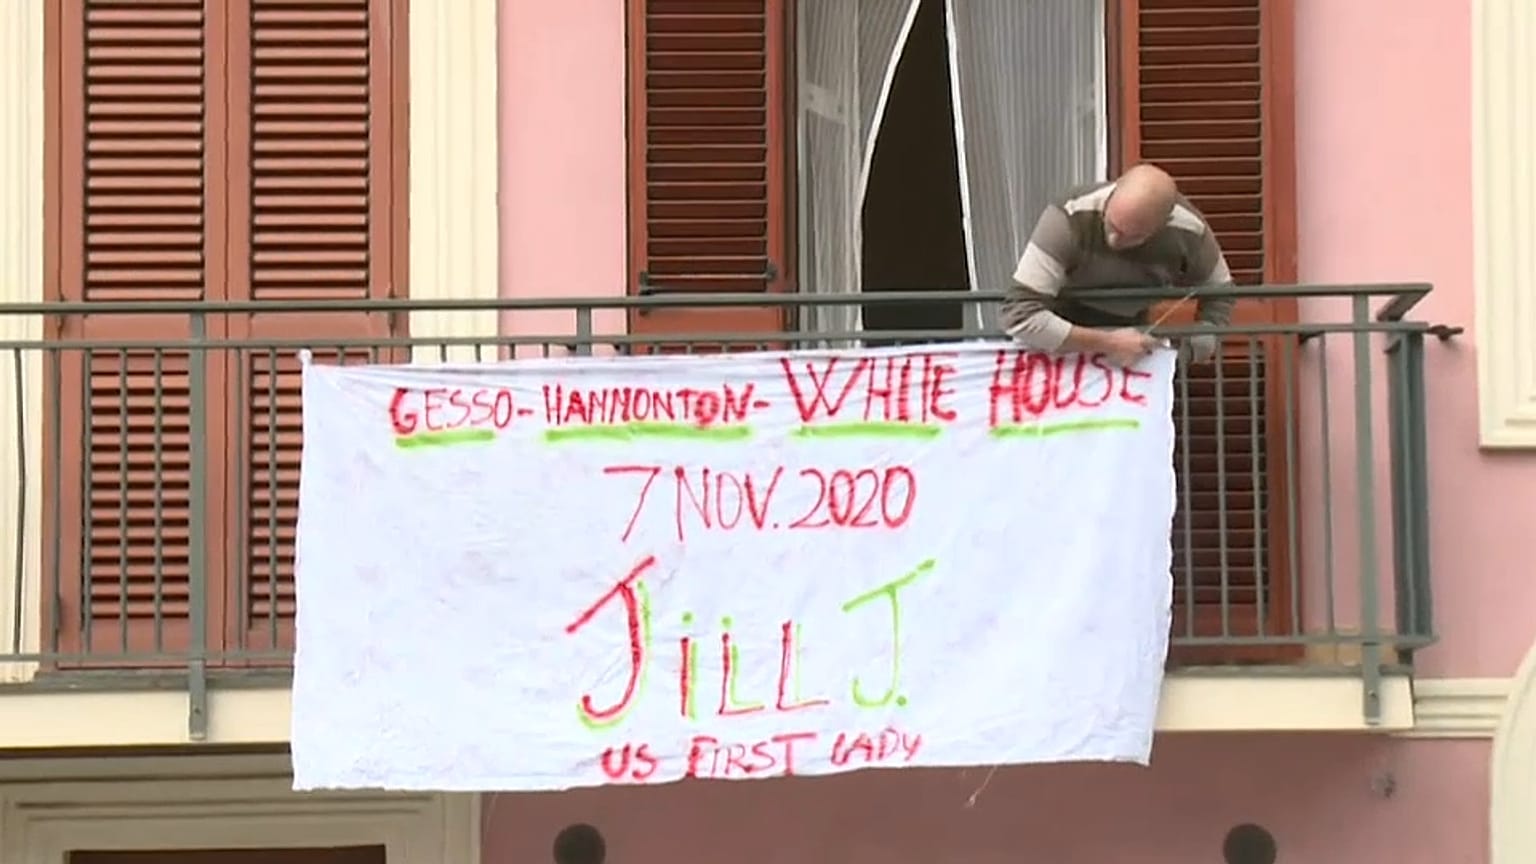 GESSO-HAMMONTON-WHITE HOUSE
7 NOV. 2020
JiLL J.
US FIRST LADY